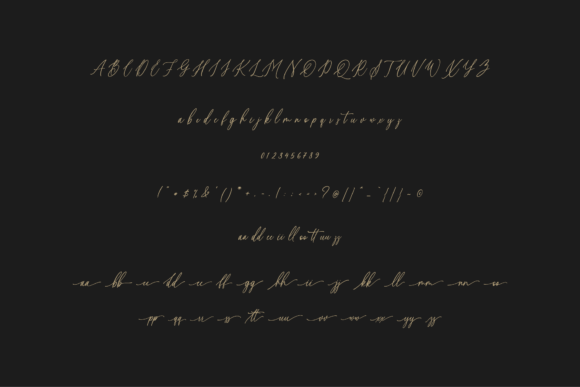 A B C D E F G H I J K L M N O P Q R S T U V W X Y Z
a b c d e f g h i j k l m n o p q r s t u v w x y z
0 1 2 3 4 5 6 7 8 9
! " # $ % & ' ( ) * ? @
aa dd ee ii ll oo tt uu
aa bb cc dd ee ff gg hh ii jj kk ll mm nn oo
pp qq rr ss tt uu vv ww xx yy zz